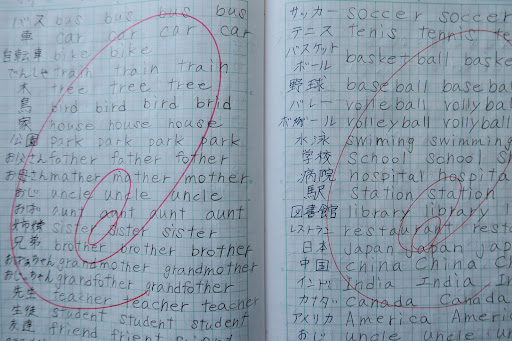 バス bus bus bus bus
車 car car car car
自転車 bike bike
でんしゃ train train train
木 tree tree tree
鳥 bird bird bird brid
家 house house house
公園 park park park park
お父さん father father father
お母さん mather mother mother
おじ uncle uncle uncle
おば aunt annt aunt aunt
姉妹 sister sister sister
兄弟 brother brother brother
おばあちゃん grandmother grandmother
おじいちゃん grandfather grandfather
先生 teacher teacher teacher
生徒 student student
友達 friend friend
サッカー soccer soccer
テニス tenis tennis te
バスケットボール basketball baske
野球 baseball baseba
バレー volleball vollyball
volleyball vollyball
水泳 swiming swimming
学校 school school S
病院 hospital hospita
駅 station station
図書館 library library
レストラン restaurant rest
日本 Japan Japan jap
中国 china China C
インド India India In
カナダ Canada Canada
アメリカ America Americ
おじ uncle uncle un